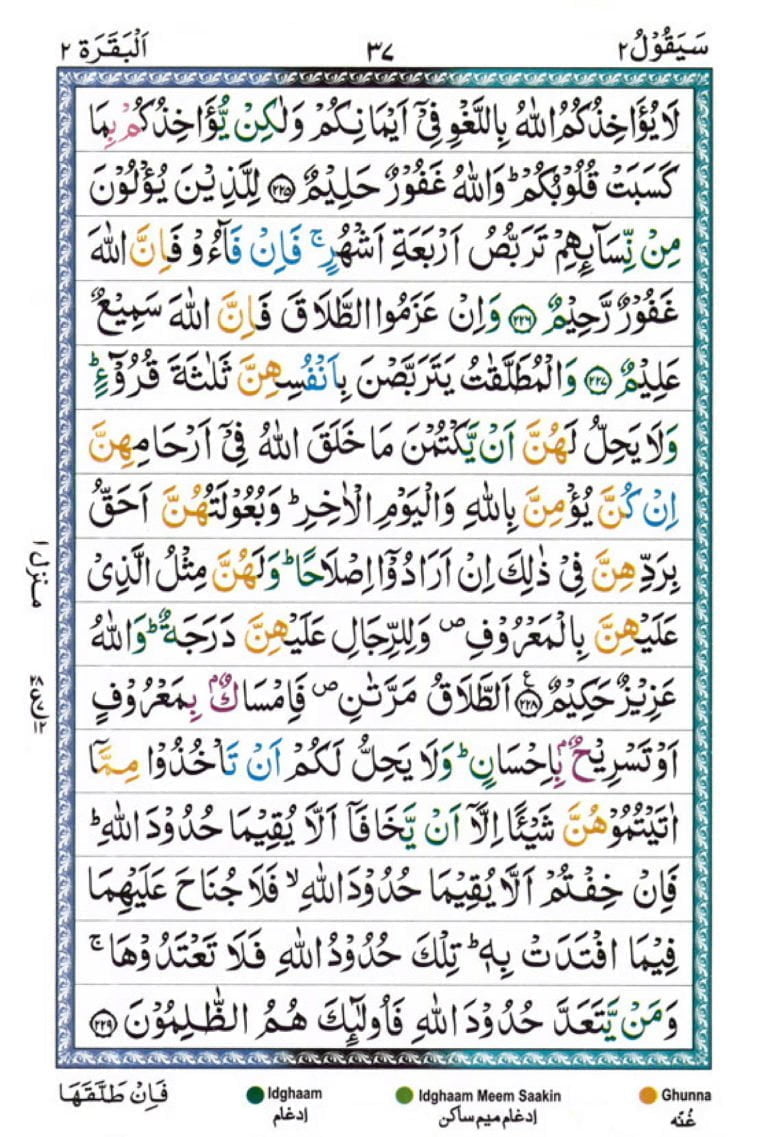 سَيَقُوْلُ ٢ ٣٧ اَلْبَقَرَة ٢
لَا يُؤَاخِذُكُمُ اللّٰهُ بِاللَّغْوِ فِىْٓ اَيْمَانِكُمْ وَلٰكِنْ يُّؤَاخِذُكُمْ بِمَا
كَسَبَتْ قُلُوْبُكُمْ ؕ وَاللّٰهُ غَفُوْرٌ حَلِيْمٌ ﴿٢٢٥﴾ لِلَّذِيْنَ يُؤْلُوْنَ
مِنْ نِّسَآىِٕهِمْ تَرَبُّصُ اَرْبَعَةِ اَشْهُرٍ ۚ فَاِنْ فَآءُوْ فَاِنَّ اللّٰهَ
غَفُوْرٌ رَّحِيْمٌ ﴿٢٢٦﴾ وَاِنْ عَزَمُوا الطَّلَاقَ فَاِنَّ اللّٰهَ سَمِيْعٌ
عَلِيْمٌ ﴿٢٢٧﴾ وَالْمُطَلَّقٰتُ يَتَرَبَّصْنَ بِاَنْفُسِهِنَّ ثَلٰثَةَ قُرُوْٓءٍ ؕ
وَلَا يَحِلُّ لَهُنَّ اَنْ يَّكْتُمْنَ مَا خَلَقَ اللّٰهُ فِىْٓ اَرْحَامِهِنَّ
اِنْ كُنَّ يُؤْمِنَّ بِاللّٰهِ وَالْيَوْمِ الْاٰخِرِ ؕ وَبُعُوْلَتُهُنَّ اَحَقُّ
بِرَدِّهِنَّ فِىْ ذٰلِكَ اِنْ اَرَادُوْٓا اِصْلَاحًا ؕ وَلَهُنَّ مِثْلُ الَّذِىْ
عَلَيْهِنَّ بِالْمَعْرُوْفِ ص وَلِلرِّجَالِ عَلَيْهِنَّ دَرَجَةٌ ؕ وَاللّٰهُ
عَزِيْزٌ حَكِيْمٌ ﴿٢٢٨﴾ ع اَلطَّلَاقُ مَرَّتٰنِ ص فَاِمْسَاكٌۢ بِمَعْرُوْفٍ
اَوْ تَسْرِيْحٌۢ بِاِحْسَانٍ ؕ وَلَا يَحِلُّ لَكُمْ اَنْ تَاْخُذُوْا مِمَّآ
اٰتَيْتُمُوْهُنَّ شَيْئًا اِلَّآ اَنْ يَّخَافَآ اَلَّا يُقِيْمَا حُدُوْدَ اللّٰهِ ؕ
فَاِنْ خِفْتُمْ اَلَّا يُقِيْمَا حُدُوْدَ اللّٰهِ ۙ فَلَا جُنَاحَ عَلَيْهِمَا
فِيْمَا افْتَدَتْ بِهٖ ؕ تِلْكَ حُدُوْدُ اللّٰهِ فَلَا تَعْتَدُوْهَا ۚ
وَمَنْ يَّتَعَدَّ حُدُوْدَ اللّٰهِ فَاُولٰٓىِٕكَ هُمُ الظّٰلِمُوْنَ ﴿٢٢٩﴾
منزل ١
٢٨ ع ١٢
فَاِنْ طَلَّقَهَا
Idghaam
إدغام
Idghaam Meem Saakin
إدغام ميم ساكن
Ghunna
غُنّه